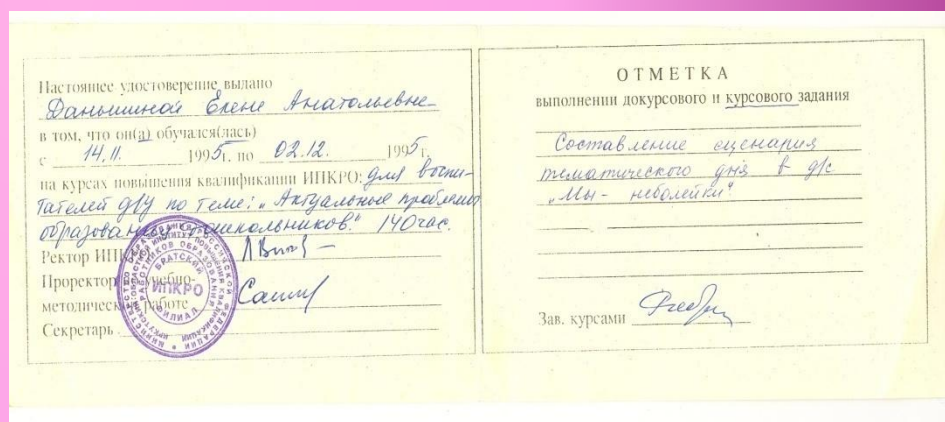 Настоящее удостоверение выдано
Даньшиной Елене Анатольевне
в том, что он(а) обучался(лась)
с 14.11. 1995г. по 02.12. 1995г.
на курсах повышения квалификации ИПКРО: для воспи-
тателей д/у по теме: „Актуальные проблемы
образования дошкольников". 140час.
Ректор ИПКРО
Проректор по учебно-
методической работе
Секретарь
БРАТСКИЙ
ИПКРО
ФИЛИАЛ
ОТМЕТКА
выполнении докурсового и курсового задания
Составление сценария
тематического дня в д/с
„Мы - неболейки"
Зав. курсами